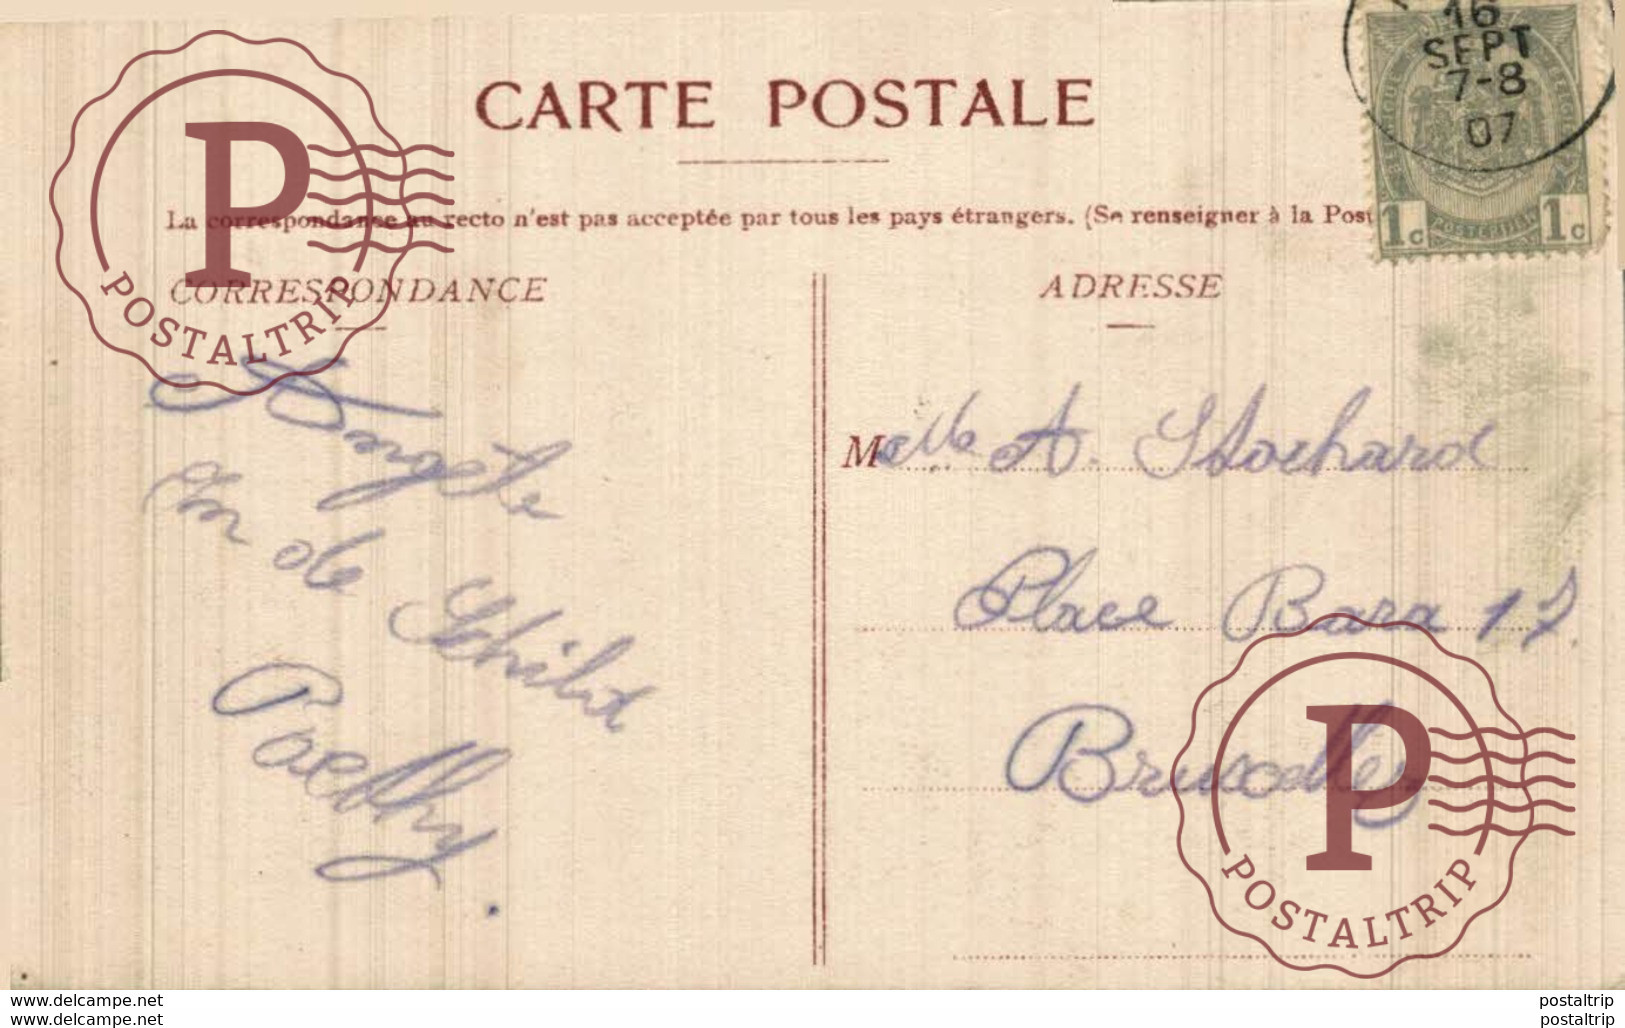 CARTE POSTALE
La correspondance au recto n'est pas acceptée par tous les pays étrangers. (Se renseigner à la Post
CORRESPONDANCE
ADRESSE
16
SEPT
7-8
07
1c POSTERIJEN 1c
P
POSTALTRIP
Angèle
de
Melle A. Stochard
Place Bara 17.
Bruxelles
P
POSTALTRIP
www.delcampe.net
postaltrip
www.delcampe.net
postaltrip